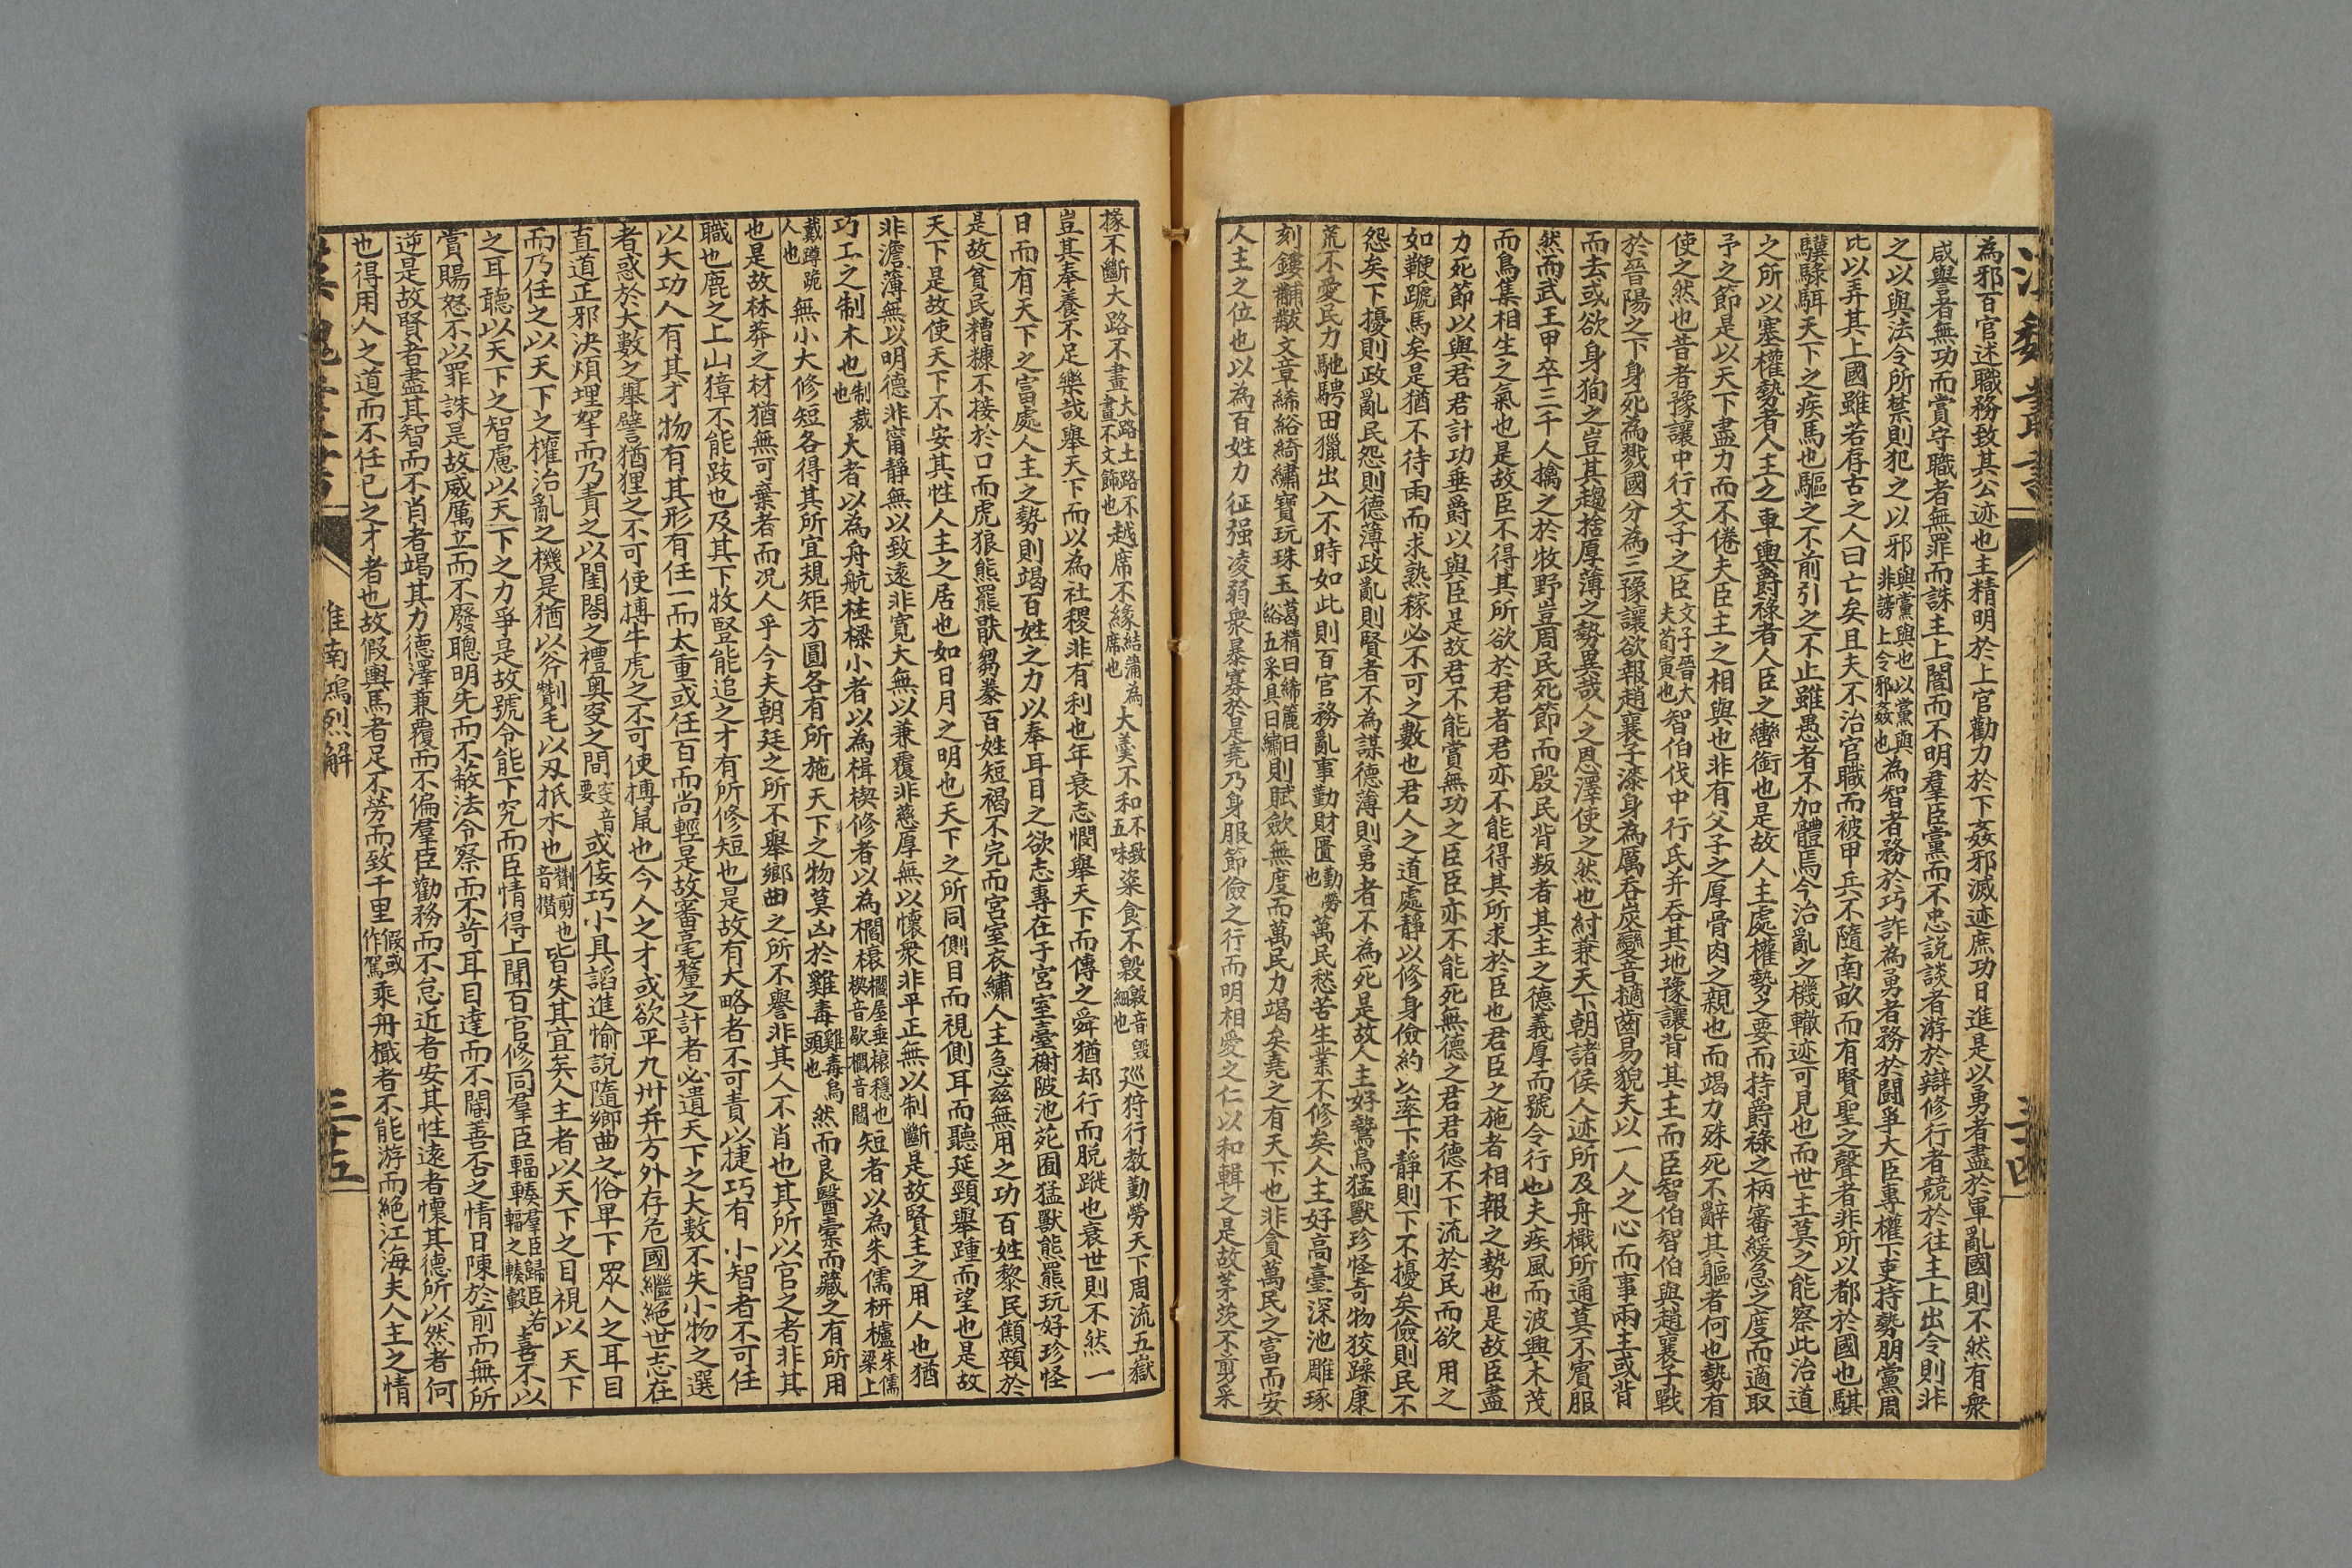 漢魏叢書
三十四
為邪百官述職務致其公迹也主精明於上官勸力於下姦邪滅迹庶功日進是以勇者盡於軍亂國則不然有衆
咸譽者無功而賞守職者無罪而誅主上闇而不明羣臣黨而不忠説談者游於辯修行者競於往主上出令則非
之以與法令所禁則犯之以邪與黨與也以黨與非謗上令邪姦也為智者務於巧詐為勇者務於鬪爭大臣專權下吏持勢朋黨周
比以弄其上國雖若存古之人曰亡矣且夫不治官職而被甲兵不隨南畝而有賢聖之聲者非所以都於國也騏
驥騄駬天下之疾馬也驅之不前引之不止雖愚者不加體焉今治亂之機轍迹可見也而世主莫之能察此治道
之所以塞權勢者人主之車輿爵祿者人臣之轡銜也是故人主處權勢之要而持爵祿之柄審緩急之度而適取
予之節是以天下盡力而不倦夫臣主之相與也非有父子之厚骨肉之親也而竭力殊死不辭其軀者何也勢有
使之然也昔者豫讓中行文子之臣文子晉大夫荀寅也智伯伐中行氏并吞其地豫讓背其主而臣智伯智伯與趙襄子戰
於晉陽之下身死為戮國分為三豫讓欲報趙襄子漆身為厲吞炭變音擿齒易貌夫以一人之心而事兩主或背
而去或欲身狥之豈其趨捨厚薄之勢異哉人之恩澤使之然也紂兼天下朝諸侯人迹所及舟檝所通莫不賓服
然而武王甲卒三千人擒之於牧野豈周民死節而殷民背叛者其主之德義厚而號令行也夫疾風而波興木茂
而鳥集相生之氣也是故臣不得其所欲於君者君亦不能得其所求於臣也君臣之施者相報之勢也是故臣盡
力死節以與君君計功垂爵以與臣是故君不能賞無功之臣臣亦不能死無德之君君德不下流於民而欲用之
如鞭蹏馬矣是猶不待雨而求熟稼必不可之數也君人之道處靜以修身儉約以率下靜則下不擾矣儉則民不
怨矣下擾則政亂民怨則德薄政亂則賢者不為謀德薄則勇者不為死是故人主好鷙鳥猛獸珍怪奇物狡躁康
荒不愛民力馳騁田獵出入不時如此則百官務亂事勤財匱勤勞也萬民愁苦生業不修矣人主好高臺深池雕琢
刻鏤黼黻文章絺綌綺繡寶玩珠玉葛精曰絺麤曰綌五采具曰繡則賦歛無度而萬民力竭矣堯之有天下也非貪萬民之富而安
人主之位也以為百姓力征强凌弱衆暴寡於是堯乃身服節儉之行而明相愛之仁以和輯之是故茅茨不剪采
椽不斷大路不畫大路土路不畫不文飾也越席不緣結蒲為席也大羹不和不致五味粢食不毇毇音毀細也廵狩行教勤勞天下周流五嶽
豈其奉養不足樂哉舉天下而以為社稷非有利也年衰志憫舉天下而傳之舜猶却行而脱蹝也衰世則不然一
日而有天下之富處人主之勢則竭百姓之力以奉耳目之欲志專在于宮室臺榭陂池苑囿猛獸熊羆玩好珍怪
是故貧民糟糠不接於口而虎狼熊羆猒芻豢百姓短褐不完而宮室衣繡人主急兹無用之功百姓黎民顦顇於
天下是故使天下不安其性人主之居也如日月之明也天下之所同側目而視側耳而聽延頸舉踵而望也是故
非澹薄無以明德非甯靜無以致遠非寛大無以兼覆非慈厚無以懷衆非平正無以制斷是故賢主之用人也猶
巧工之制木也制裁也大者以為舟航柱樑小者以為楫楔修者以為櫩榱櫩屋垂榱穩也楔音歇櫩音閻短者以為朱儒枅櫨朱儒梁上
戴蹲跪人也無小大修短各得其所宜規矩方圓各有所施天下之物莫凶於雞毒雞毒烏頭也然而良醫橐而藏之有所用
也是故林莽之材猶無可棄者而况人乎今夫朝廷之所不舉鄉曲之所不譽非其人不肖也其所以官之者非其
職也鹿之上山獐不能跂也及其下牧豎能追之才有所修短也是故有大略者不可責以捷巧有小智者不可任
以大功人有其才物有其形有任一而太重或任百而尚輕是故審毫釐之計者必遺天下之大數不失小物之選
者惑於大數之舉譬猶狸之不可使搏牛虎之不可使搏鼠也今人之才或欲平九州并方外存危國繼絕世志在
直道正邪决煩理挐而乃責之以閨閤之禮奧窔之間窔音要或佞巧小具謟進愉説隨鄉曲之俗卑下眾人之耳目
而乃任之以天下之權治亂之機是猶以斧劗毛以刄抵木也劗剪也音攢皆失其宜矣人主者以天下之目視以天下
之耳聽以天下之智慮以天下之力爭是故號令能下究而臣情得上聞百官修同羣臣輻輳羣臣歸臣若輻之輳轂喜不以
賞賜怒不以罪誅是故威厲立而不廢聰明先而不蔽法令察而不苛耳目達而不闇善否之情日陳於前而無所
逆是故賢者盡其智而不肖者竭其力德澤兼覆而不偏羣臣勸務而不怠近者安其性遠者懷其德所以然者何
也得用人之道而不任已之才者也故假輿馬者足不勞而致千里假或作駕乘舟檝者不能游而絕江海夫人主之情
漢魏叢書
淮南鴻烈解
三十五